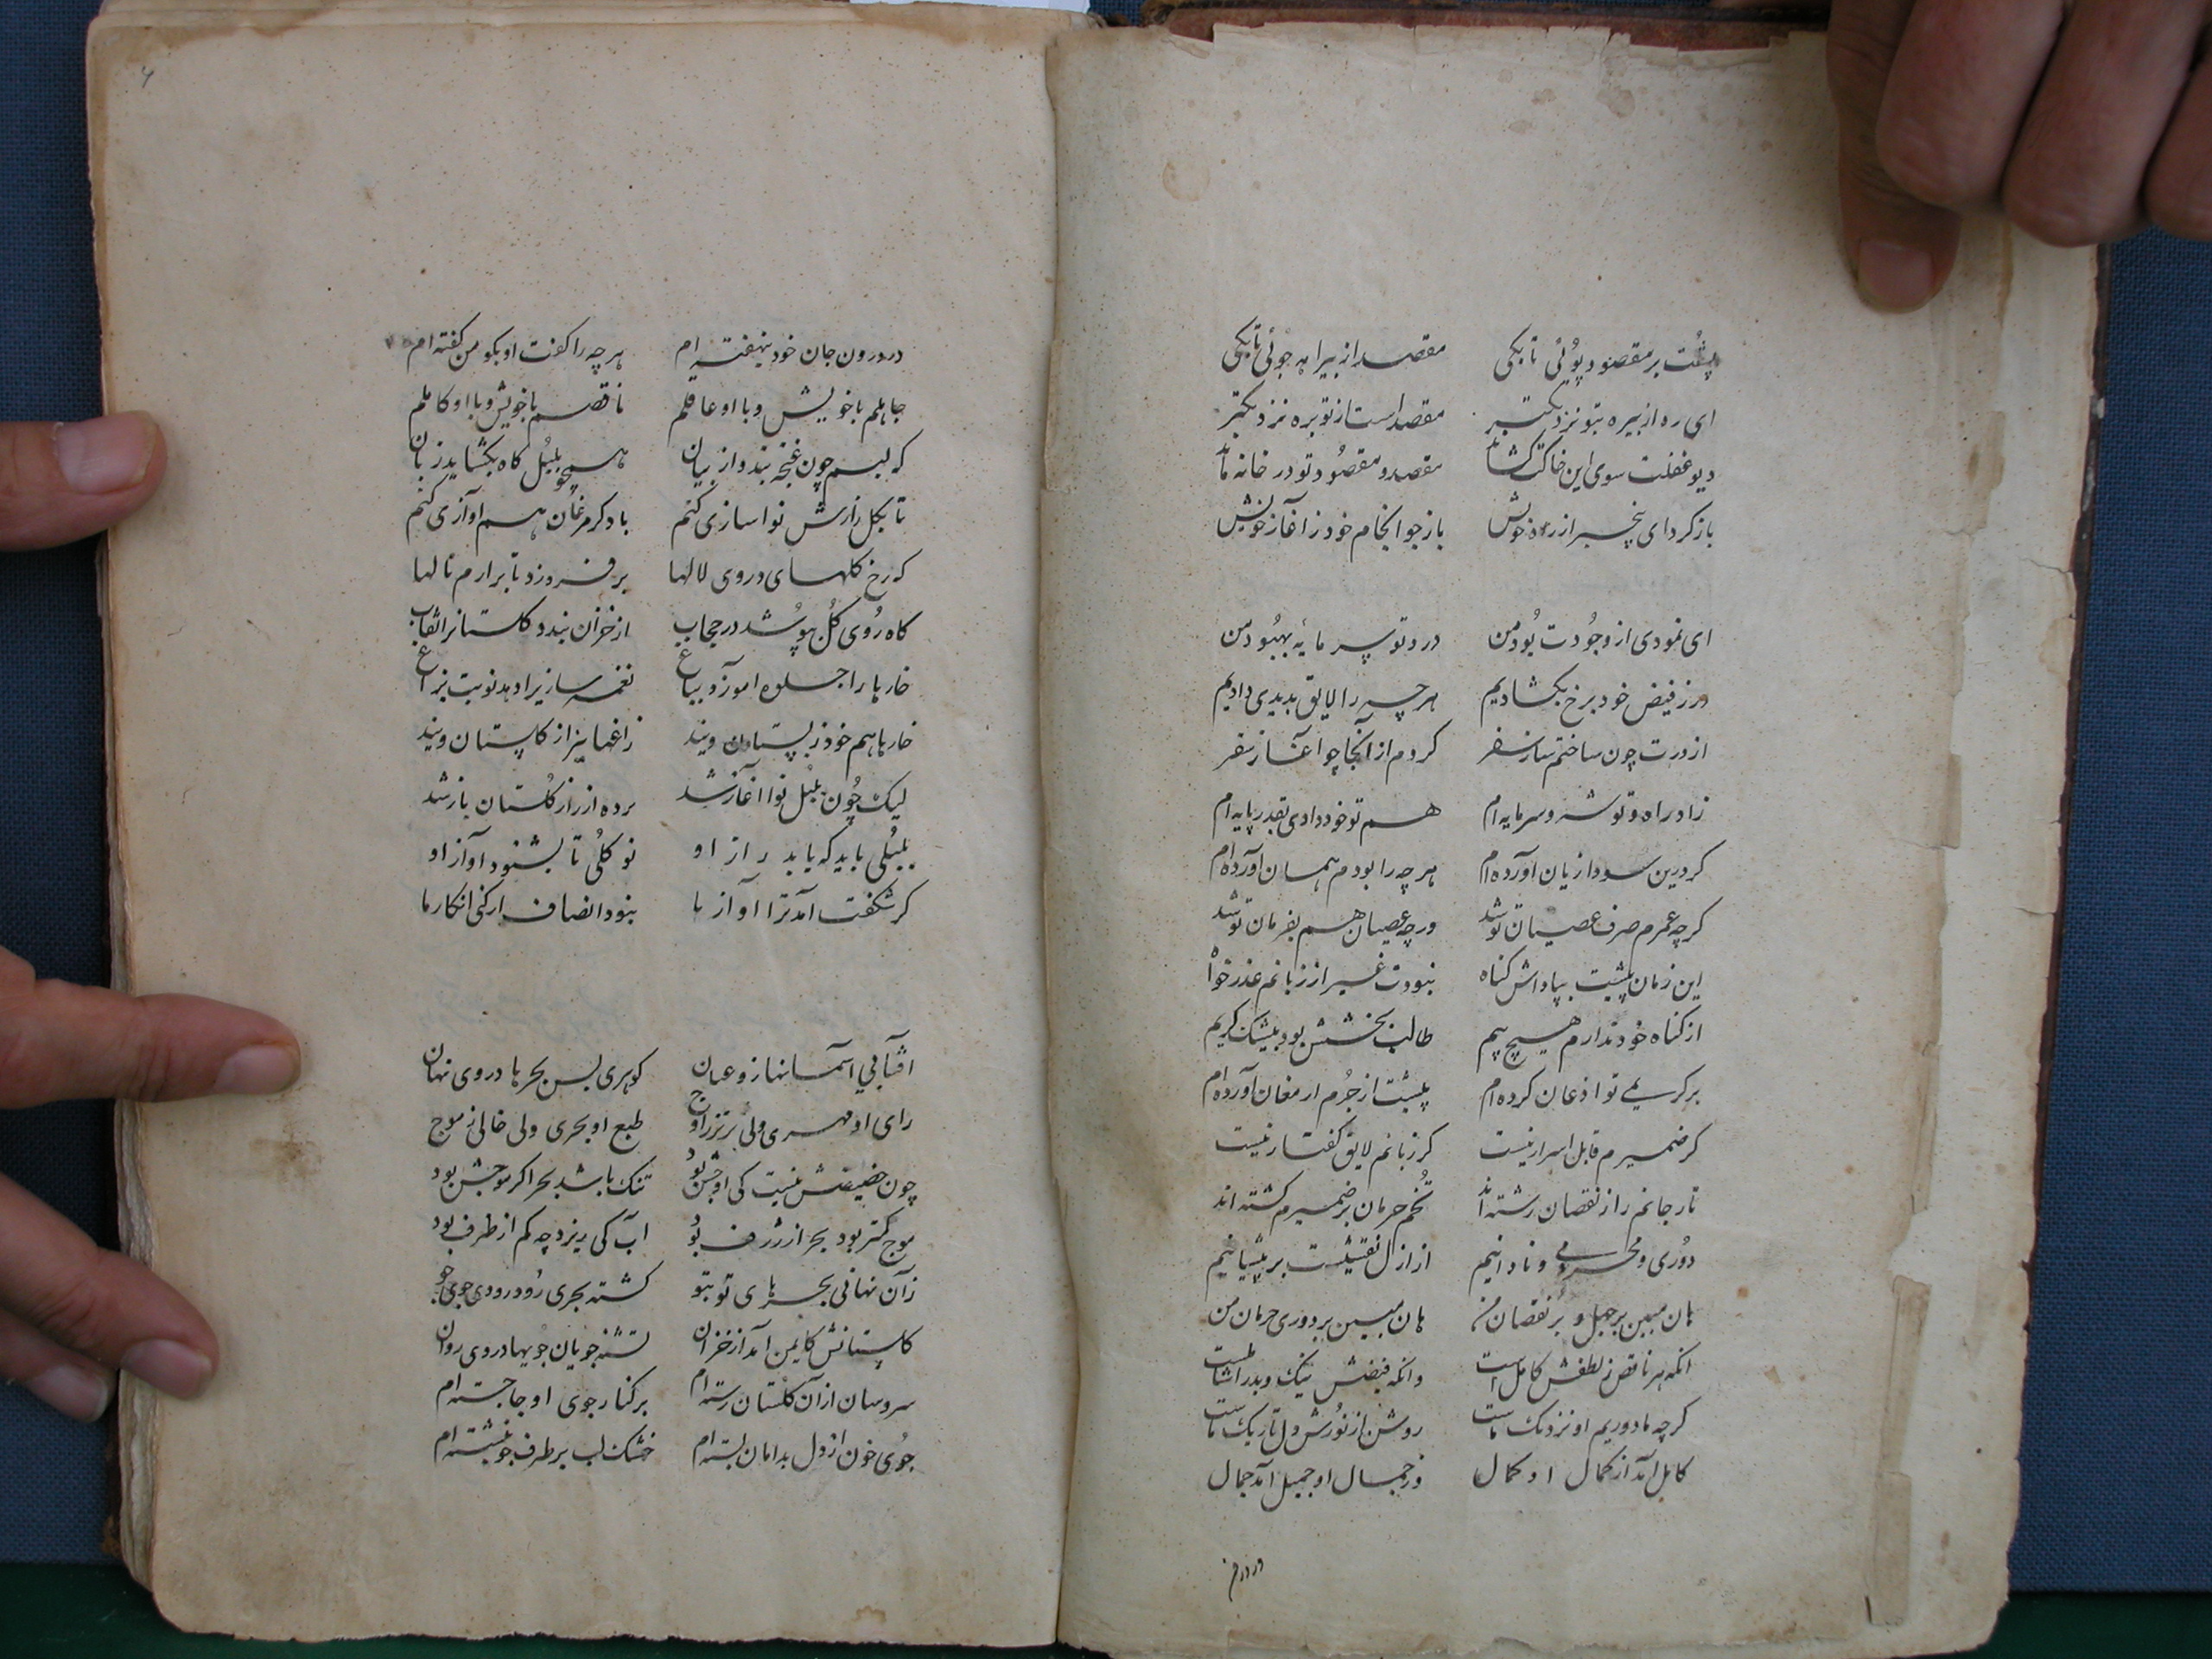 پشت بر مقصود پوئی تا بکی مقصد از بیراهه جوئی تا بکی
ای ره از بیره بتو نزدیکتر مقصد است از تو بره نزدیکتر
دیو غفلت سوی این خاکت کشاند مقصد و مقصود تو در خانه ماند
باز کرد ای بیخبر از ره خویش باز جو انجام خود ز آغاز خویش
ای نمودی از وجودت بود من درد تو سرمایه بهبود من
در ز فیض خود برخ بکشادیم هر چه را لایق بدیدی دادیم
از درت چون ساختم ساز سفر کردم از آنجا چو آغاز سفر
زاد راه و توشه و سرمایه ام هم تو خود دادی بقدر پایه ام
کر درین سودا زیان آورده ام هر چه را بودم همان آورده ام
کرچه عمرم صرف عصیان تو شد ورچه عصیان هم بفرمان تو شد
این زمان پیشت بپاداش کناه نبودت غیر از زبانم عذر خواه
از کناه خود ندارم هیچ بیم طالب بخشش بود بیشک کریم
بر کریمی تو اذعان کرده ام پیشت از جرم ارمغان آورده ام
کر ضمیرم قابل اسرار نیست کر زبانم لایق کفتار نیست
تار جانم را ز نقصان رشته اند تخم حرمان بر ضمیرم کشته اند
دوری و محرومی و نادانیم از ازل نقشیست بر پیشانیم
هان مبین بر جهل و بر نقصان من هان مبین بر دوری حرمان من
انکه هر ناقص ز لطفش کامل است وانکه فیضش نیک و بد را شاملست
کرچه ما دوریم او نزدیک ماست روشن از نورش دل تاریک ماست
کامل آمد از کمال او کمال وز جمال او جمیل آمد جمال
در درون
در درون جان خود بنهفته ام هر چه را کفت او بکو من کفته ام
جاهلم با خویش و با او عاقلم ناقصم با خویش و با او کاملم
که لبم چون غنچه بندد از بیان همچو بلبل کاه بکشاید زبان
تا بکل رازش نوا سازی کنم با دکر مرغان هم آوازی کنم
که رخ کلهای دروی لالها بر فروزد تا برارم نالها
کاه روی کل بپوشد در حجاب از خزان بندد کلستانرا نقاب
خارها را جلوه آموزد بباغ نغمه سازیرا دهد نوبت بزاغ
خارها هم خود ز بستان ویند زاغها نیز از کلستان ویند
لیک چون بلبل نوا آغاز شد پرده از راز کلستان باز شد
بلبلی باید که یابد راز او نو کلی تا بشنود آواز او
کر شکفت آمد ترا آواز ما نبود انصاف ار کنی انکار ما
آفتابی آسمانها زو عیان کوهری بس بحرها دروی نهان
رای او مهری ولی برتر ز اوج طبع او بحری ولی خالی ز موج
چون حضیضش نیست کی اوجش بود تنک باشد بحر اکر موجش بود
موج کمتر بود بحر ار ژرف بود آب کی ریزد چه کم از ظرف بود
زآن نهانی بحرهای تو بتو کشته بحری رود رودی جوی جو
کلستانش کایمن آمد از خزان تشنه جویان جویها دروی روان
سروسان از آن کلستان رسته ام بر کنار جوی او جا جسته ام
جوی خون از دل بدامان بسته ام خشک لب بر طرف جو بنشسته ام